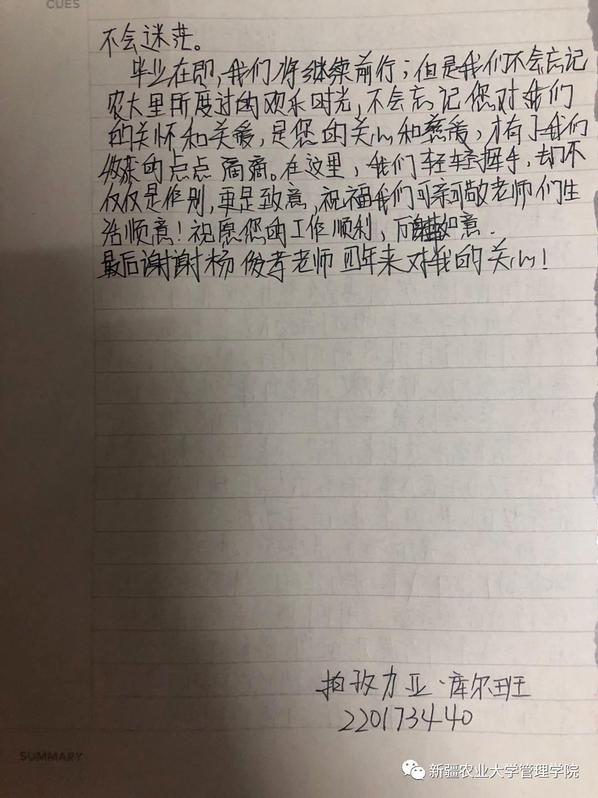 CUES
不会迷茫。
毕业在即,我们将继续前行;但是我们不会忘记
农大里所度过的欢乐时光,不会忘记您对我们
的关怀和关爱,是您的关心和慈爱,才有了我们
的点点滴滴。在这里,我们轻轻握手,却不
仅仅是作别,更是致意,祝福我们可亲可敬老师们生
活顺意!祝愿您的工作顺利,万事如意.
最后谢谢杨俊孝老师四年来对我的关心!
拍孜力亚·库尔班
220173440
SUMMARY
新疆农业大学管理学院